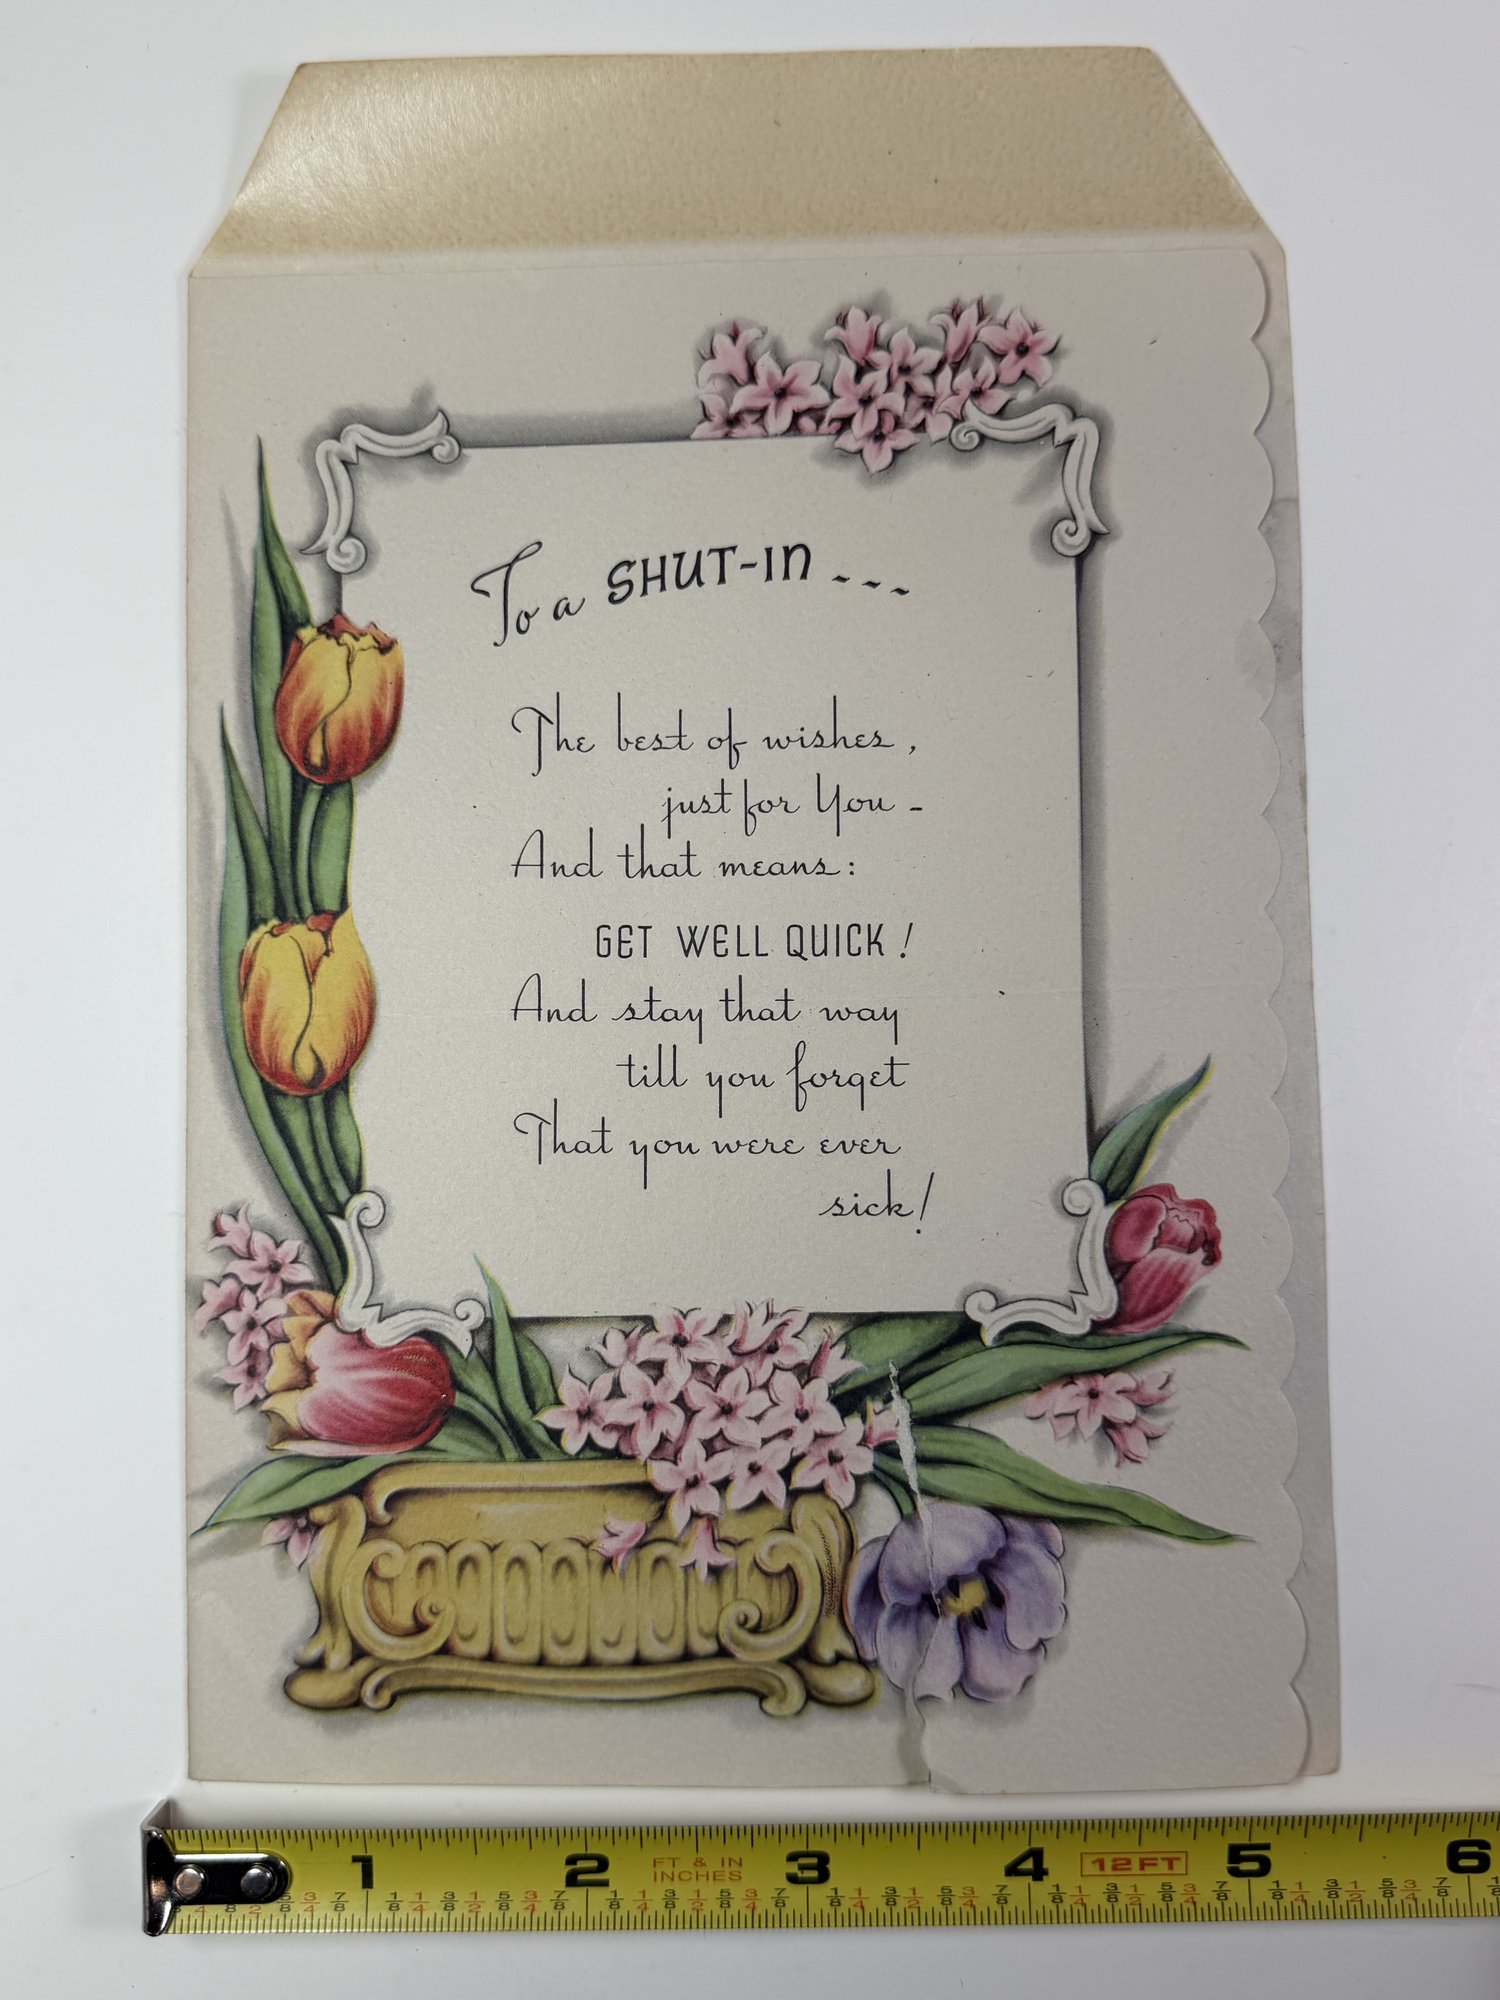 To a SHUT-IN ---
The best of wishes,
just for You -
And that means:
GET WELL QUICK!
And stay that way
till you forget
That you were ever
sick!
1 2 FT & IN INCHES 3 4 12FT 5 6